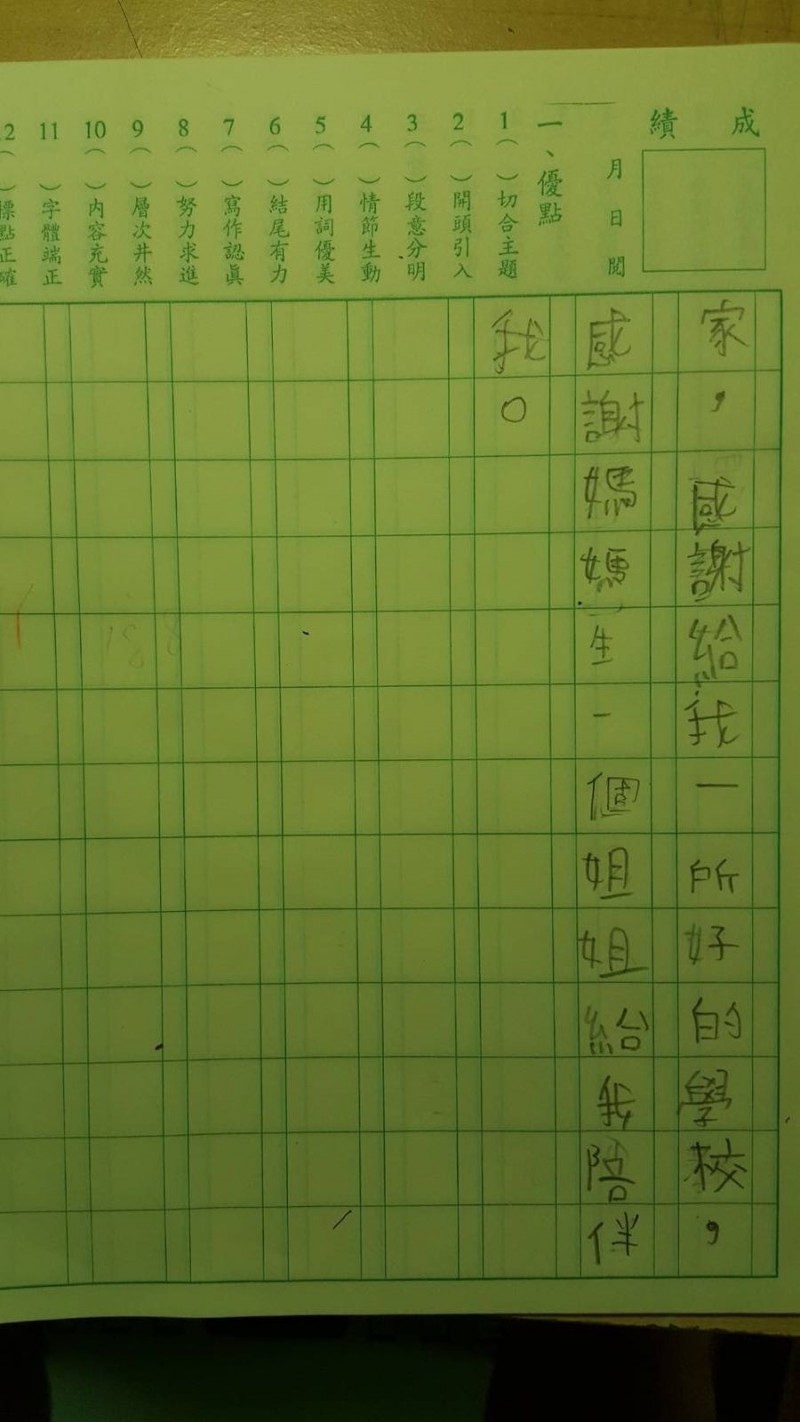 成績
月 日 閱
一、優點
1（ ）切合主題
2（ ）開頭引入
3（ ）段意分明
4（ ）情節生動
5（ ）用詞優美
6（ ）結尾有力
7（ ）寫作認真
8（ ）努力求進
9（ ）層次井然
10（ ）內容充實
11（ ）字體端正
2（ ）標點正確
家，感謝給我一所好的學校，
感謝媽媽生一個姐姐給我陪伴
我。